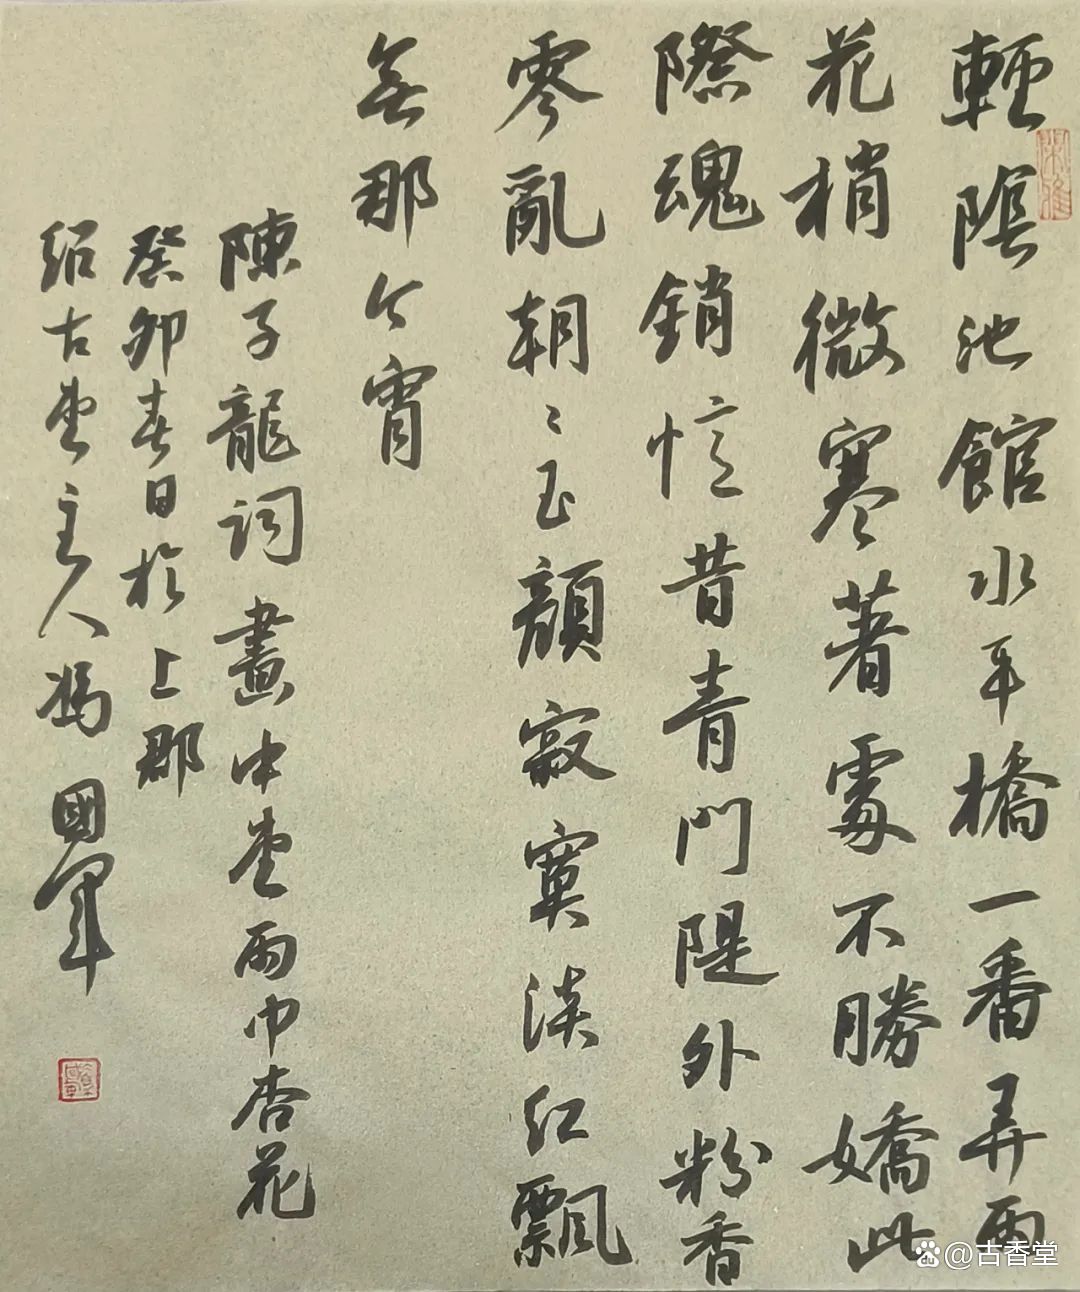 輕陰池館水平橋一番弄雨
花梢微寒著處不勝嬌此
際魂銷憶昔青門隄外粉香
零亂朝〻玉顏寂寞淡紅飄
無那今宵
陳子龍詞畫中堂雨中杏花
癸卯春日於上郡
紹古堂主人馮國軍
@古香堂